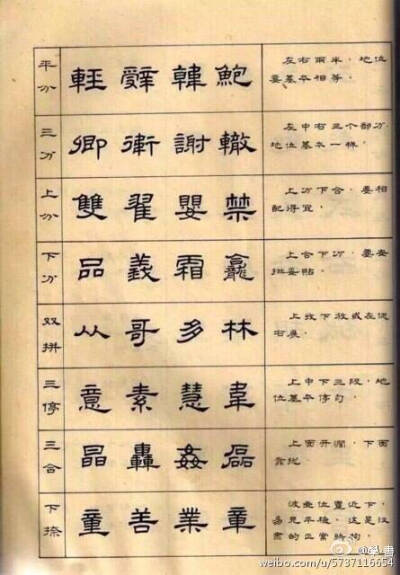 平分 輕 辭 韓 鮑 左右兩半，地位
要基本相等。
三分 卿 衛 謝 轍 左中右三个部分，
地位基本一样。
上分 雙 翟 嬰 禁 上分下合，要相
配得宜。
下分 品 義 霜 龕 上合下分，要安
排妥貼。
双拼 从 哥 多 林 上收下放或左促
右展。
三停 意 素 慧 韋 上中下三段，地
位基本停匀。
三合 晶 轟 姦 磊 上面开阔，下面
靠拢。
童 善 業 章 位置近下，
平穩，这是汉
隶的正常结构。
weibo.com/u/5737116654